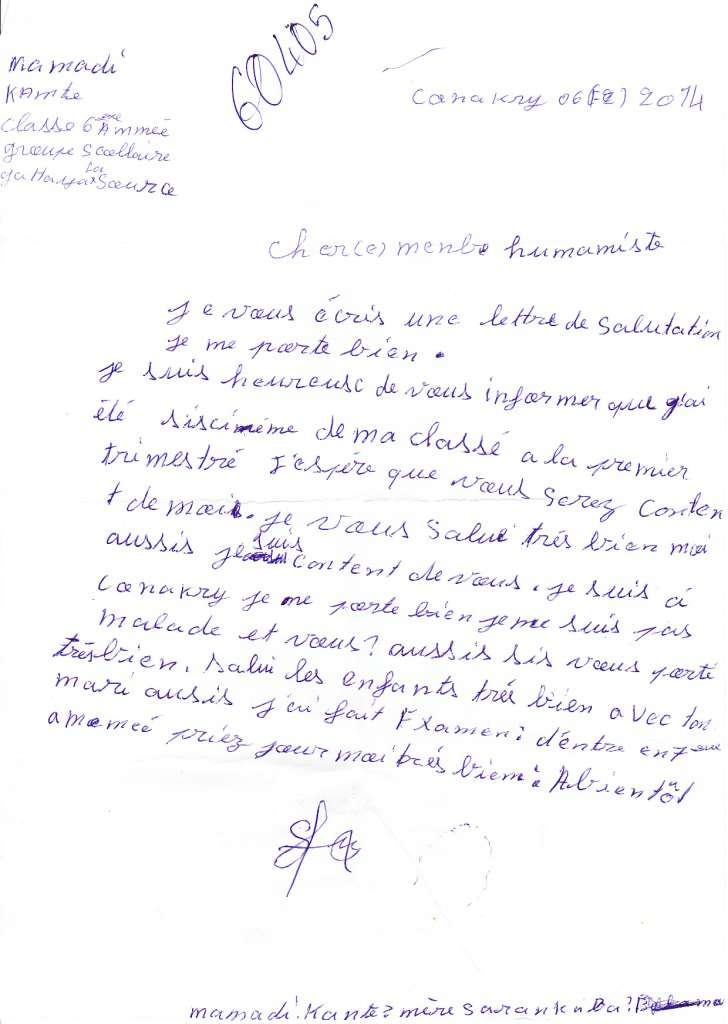 60405
Mamadi
Kante
classe 6ème Anmeé
groupe Scollaire
La
Source
Conakry 06 (12) 2014
cher(e) menbe humamiste
je vous écris une lettre de Salutation
je me porte bien.
je suis heureuse de vous informer que j'ai
été siscimème de ma classé a la premier
trimestré J'espére que vous Serez Conten
t de moi. je vous salue trés bien moi
aussis je suis Content de vous. je suis á
Conakry je me porte bien je me suis pas
malade et vous? aussis sis vous porté
trésbien. Salui les enfants trés bien avec ton
mari aussis j'ai fait Examen: d'éntre en 7 eme
anomeé priéz pour moi trés biem: A bientôt
mamadi. Kante? mère Saran kaba?